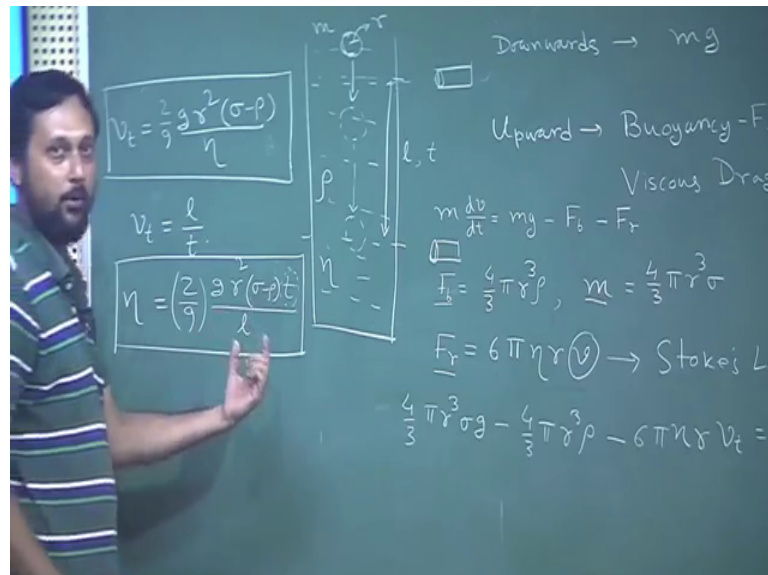 v_t = 2/9 g r² (σ-ρ) / η
v_t = l/t.
η = (2/9) g r² (σ-ρ) t / l
m r
ρ
η
l, t
Downwards → mg
Upward → Buoyancy - F
Viscous Drag
m dv/dt = mg - F_b - F_r
F_b = 4/3 π r³ ρ, m = 4/3 π r³ σ
F_r = 6 π η r v → Stoke's L
4/3 π r³ σ g - 4/3 π r³ ρ - 6 π η r v_t =